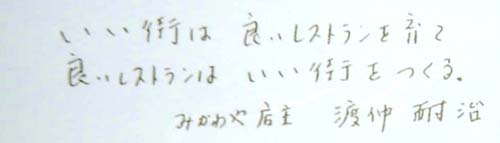 いい街は 良いレストランを育て
良いレストランは いい街をつくる。
みかわや店主 渡仲 耐治